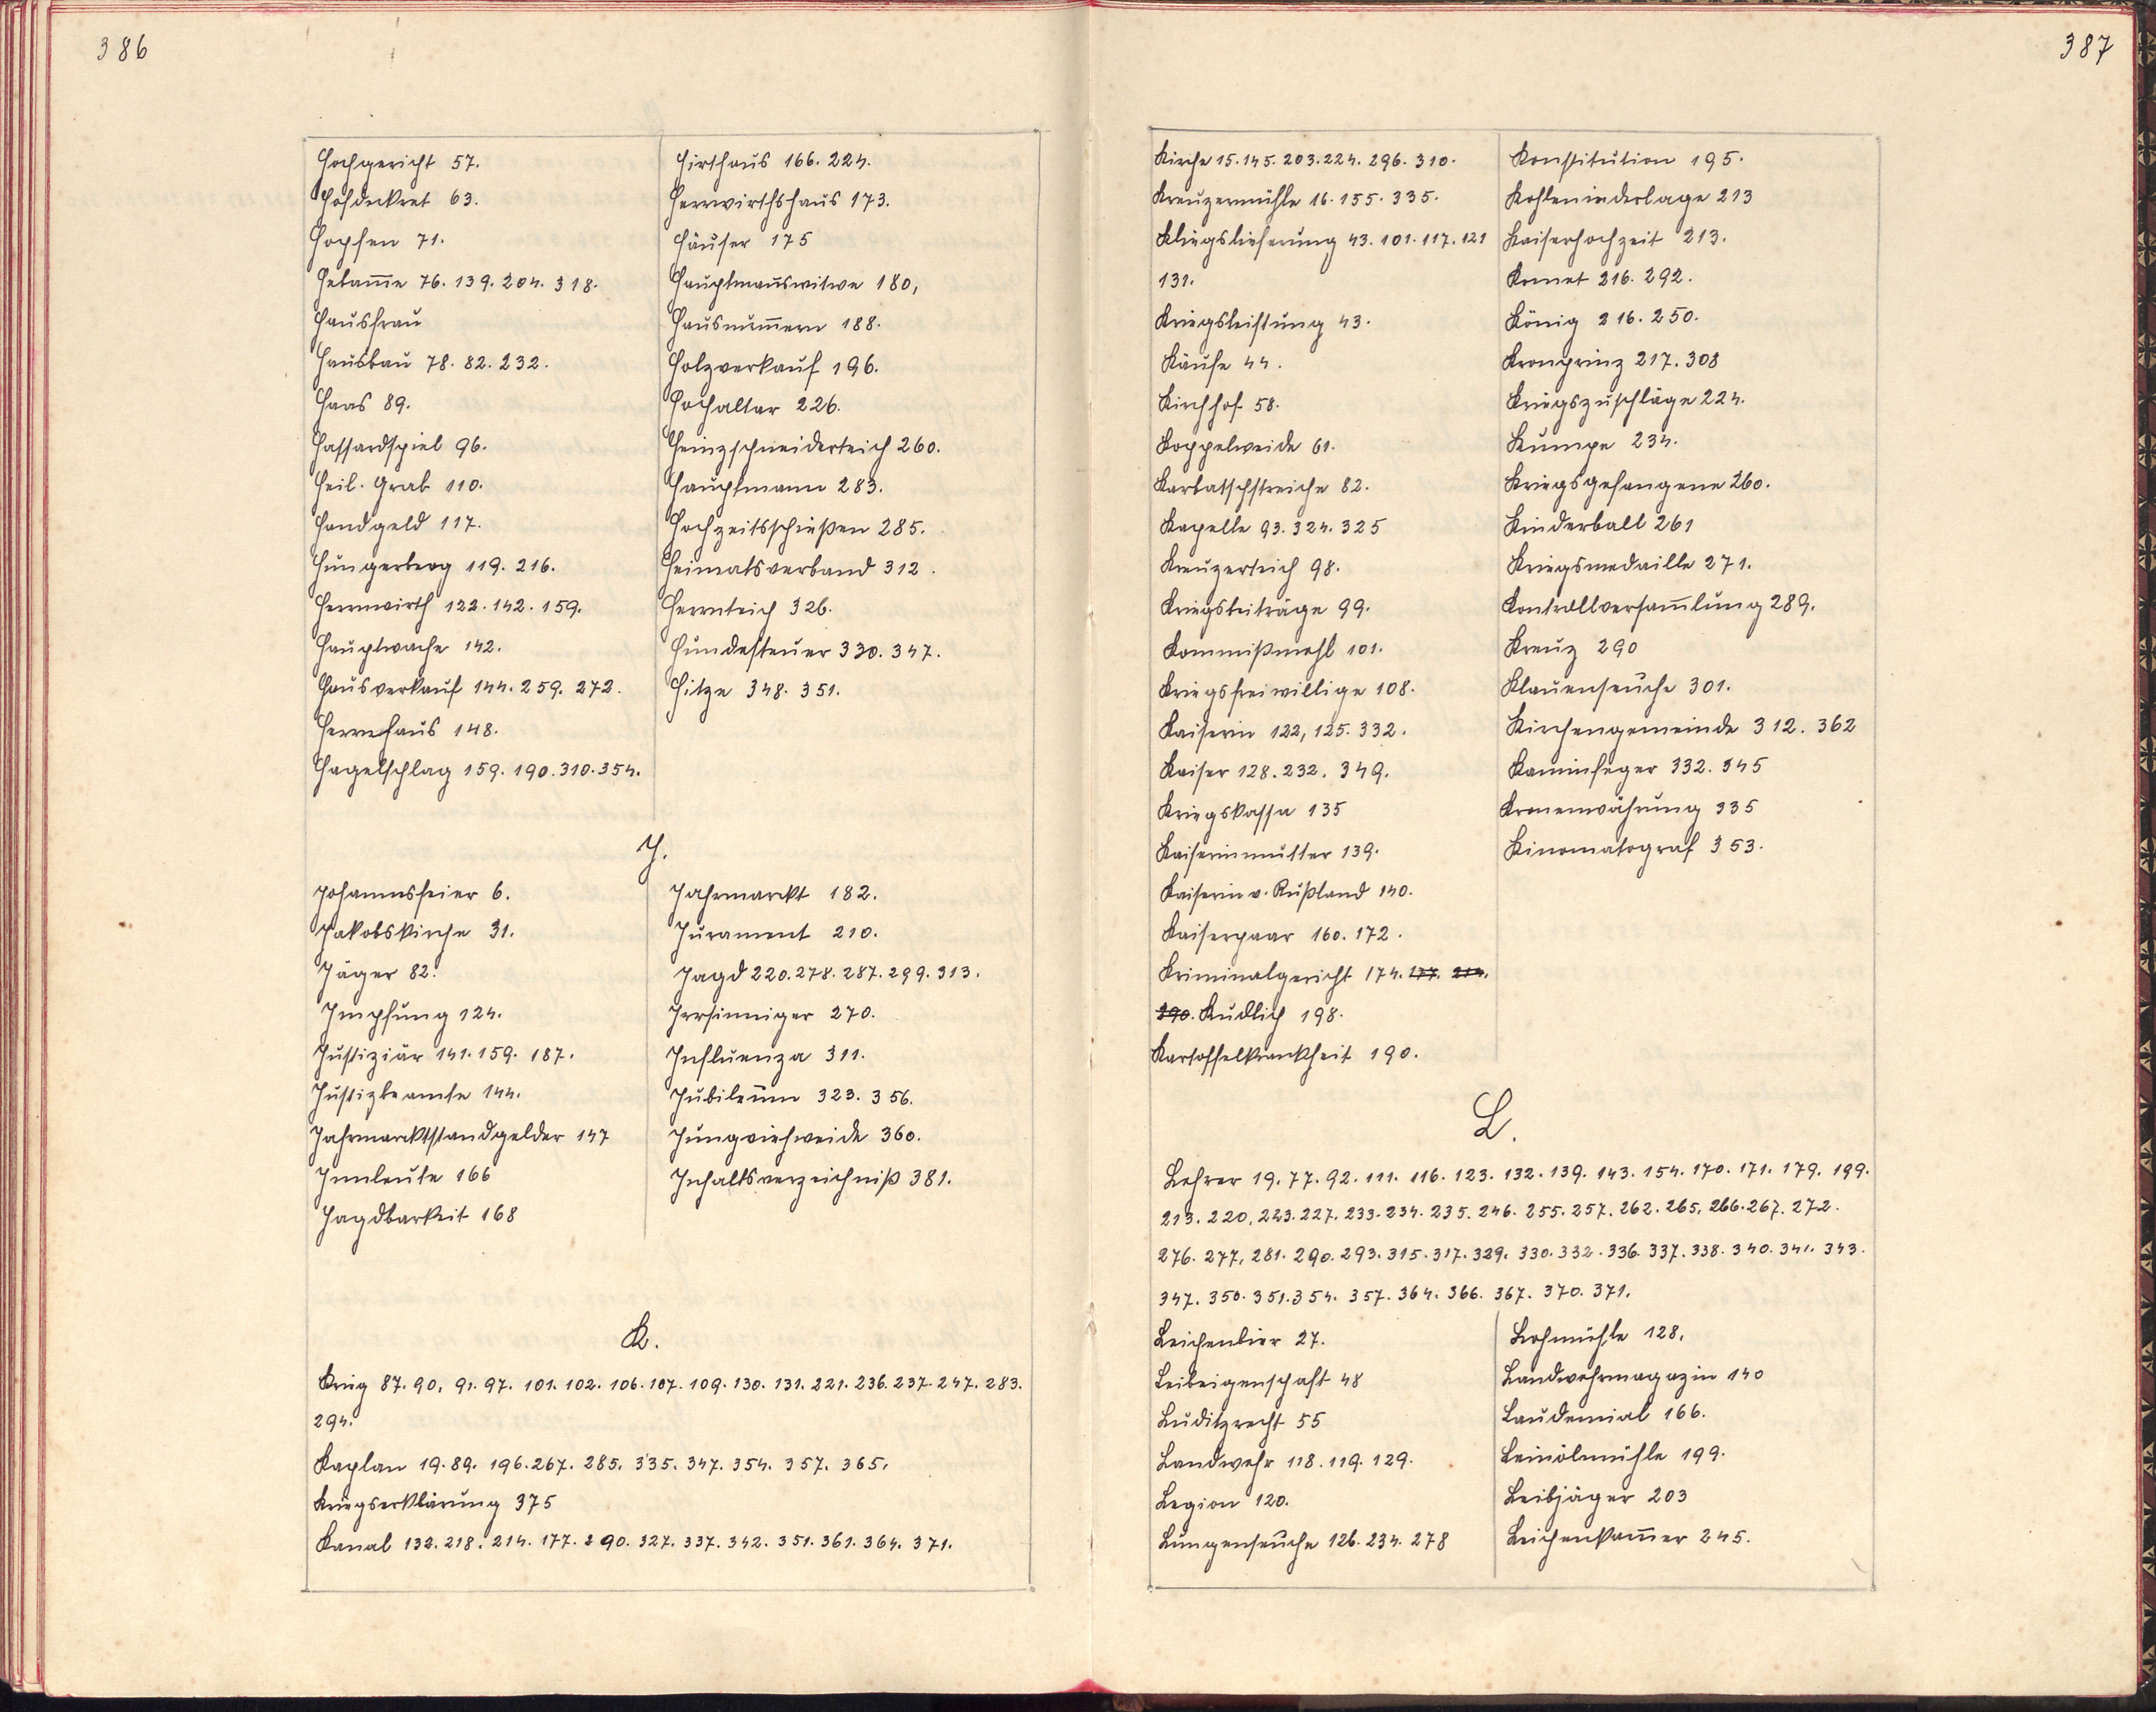 386
Hochgericht 57.
Hofdeckret 63.
Hopfen 71.
Hebam̅e 76. 139. 204. 318.
Hausfrau
Hausbau 78. 82. 232.
Haas 89.
Hassardspiel 96.
Heil. Grab 110.
Handgeld 117.
Hungerberg 119. 216.
Herrnwirth 122. 142. 159.
Hauptwache 142.
Hausverkauf 144. 259. 272.
Herrnhaus 148.
Hagelschlag 159. 190. 310. 354.
Hirthaus 166. 224.
Herrwirthshaus 173.
Häuser 175
Hauptman̅switwe 180,
Hausnum̅ern 188.
Holzverkauf 196.
Hochaltar 226.
Heinzschneiderteich 260.
Hauptmann 283.
Hochzeitsschießen 285.
Heimatsverband 312.
Herrnteich 326.
Hundesteuer 330. 347.
Hitze 348. 351.
J.
Johannsfeier 6.
Jakobskirche 31.
Jäger 82.
Impfung 124.
Justiziär 141. 159. 187.
Justizbeamte 144.
Jahrmarcktstandgelder 147
Innleute 166
Jagdbarkeit 168
Jahrmarckt 182.
Jurament 210.
Jagd 220. 278. 287. 299. 313.
Irrsinniger 270.
Influenza 311.
Jubileum 323. 356.
Jungviehweide 360.
Inhaltsverzeichniß 381.
K.
Krieg 87. 90. 91. 97. 101. 102. 106. 107. 109. 130. 131. 221. 236. 237. 247. 283.
294.
Kaplan 19. 89. 196. 267. 285. 335. 347. 354. 357. 365.
Kriegserklärung 375
Kanal 132. 218. 214. 177. 290. 327. 337. 342. 351. 361. 364. 371.
387
Kirche 15. 145. 203. 224. 296. 310.
Kreuzermühle 16. 155. 335.
Kliegslieferung 43. 101. 117. 121
131.
Kriegsleistung 43.
Käufe 44.
Kirchhof 58.
Koppelweide 61.
Karbatschstreiche 82.
Kapelle 93. 324. 325
Kreuzerteich 98.
Kriegsbeiträge 99.
Kommißmehl 101.
Kriegsfreiwillige 108.
Kaiserin 122, 125. 332.
Kaiser 128. 232. 349.
Kriegskassa 135
Kaiserinmutter 139.
Kaiserin v. Rußland 140.
Kaiserpaar 160. 172.
Kriminalgericht 174. 177. 214.
290. Kudlich 198.
Kartoffelkrankheit 190.
Konstitution 195.
Kohleninderlage 213
Kaiserhochzeit 213.
Komet 216. 292.
König 216. 250.
Kronprinz 217. 308
Kriegszuschläge 224.
Kumpe 234.
Kriegsgefangene 260.
Kinderball 261
Kriegsmedaille 271.
Kontrollversam̅lung 289.
Kreuz 290
Klauenseuche 301.
Kirchengemeinde 312. 362
Kaminfeger 332. 345
Kronenwährung 335
Kinomatograf 353.
L.
Lehrer 19. 77. 92. 111. 116. 123. 132. 139. 143. 154. 170. 171. 179. 199.
213. 220. 223. 227. 233. 234. 235. 246. 255. 257. 262. 265. 266. 267. 272.
276. 277. 281. 290. 293. 315. 317. 329. 330. 332. 336. 337. 338. 340. 341. 343.
347. 350. 351. 354. 357. 364. 366. 367. 370. 371.
Leichenbier 27.
Leibeigenschaft 48
Luditzrecht 55
Landwehr 118. 119. 129.
Legion 120.
Lungenseuche 126. 234. 278
Lohmühle 128.
Landwehrmagazin 140
Laudemial 166.
Leinölmühle 199.
Leibjäger 203
Leichenkam̅er 245.